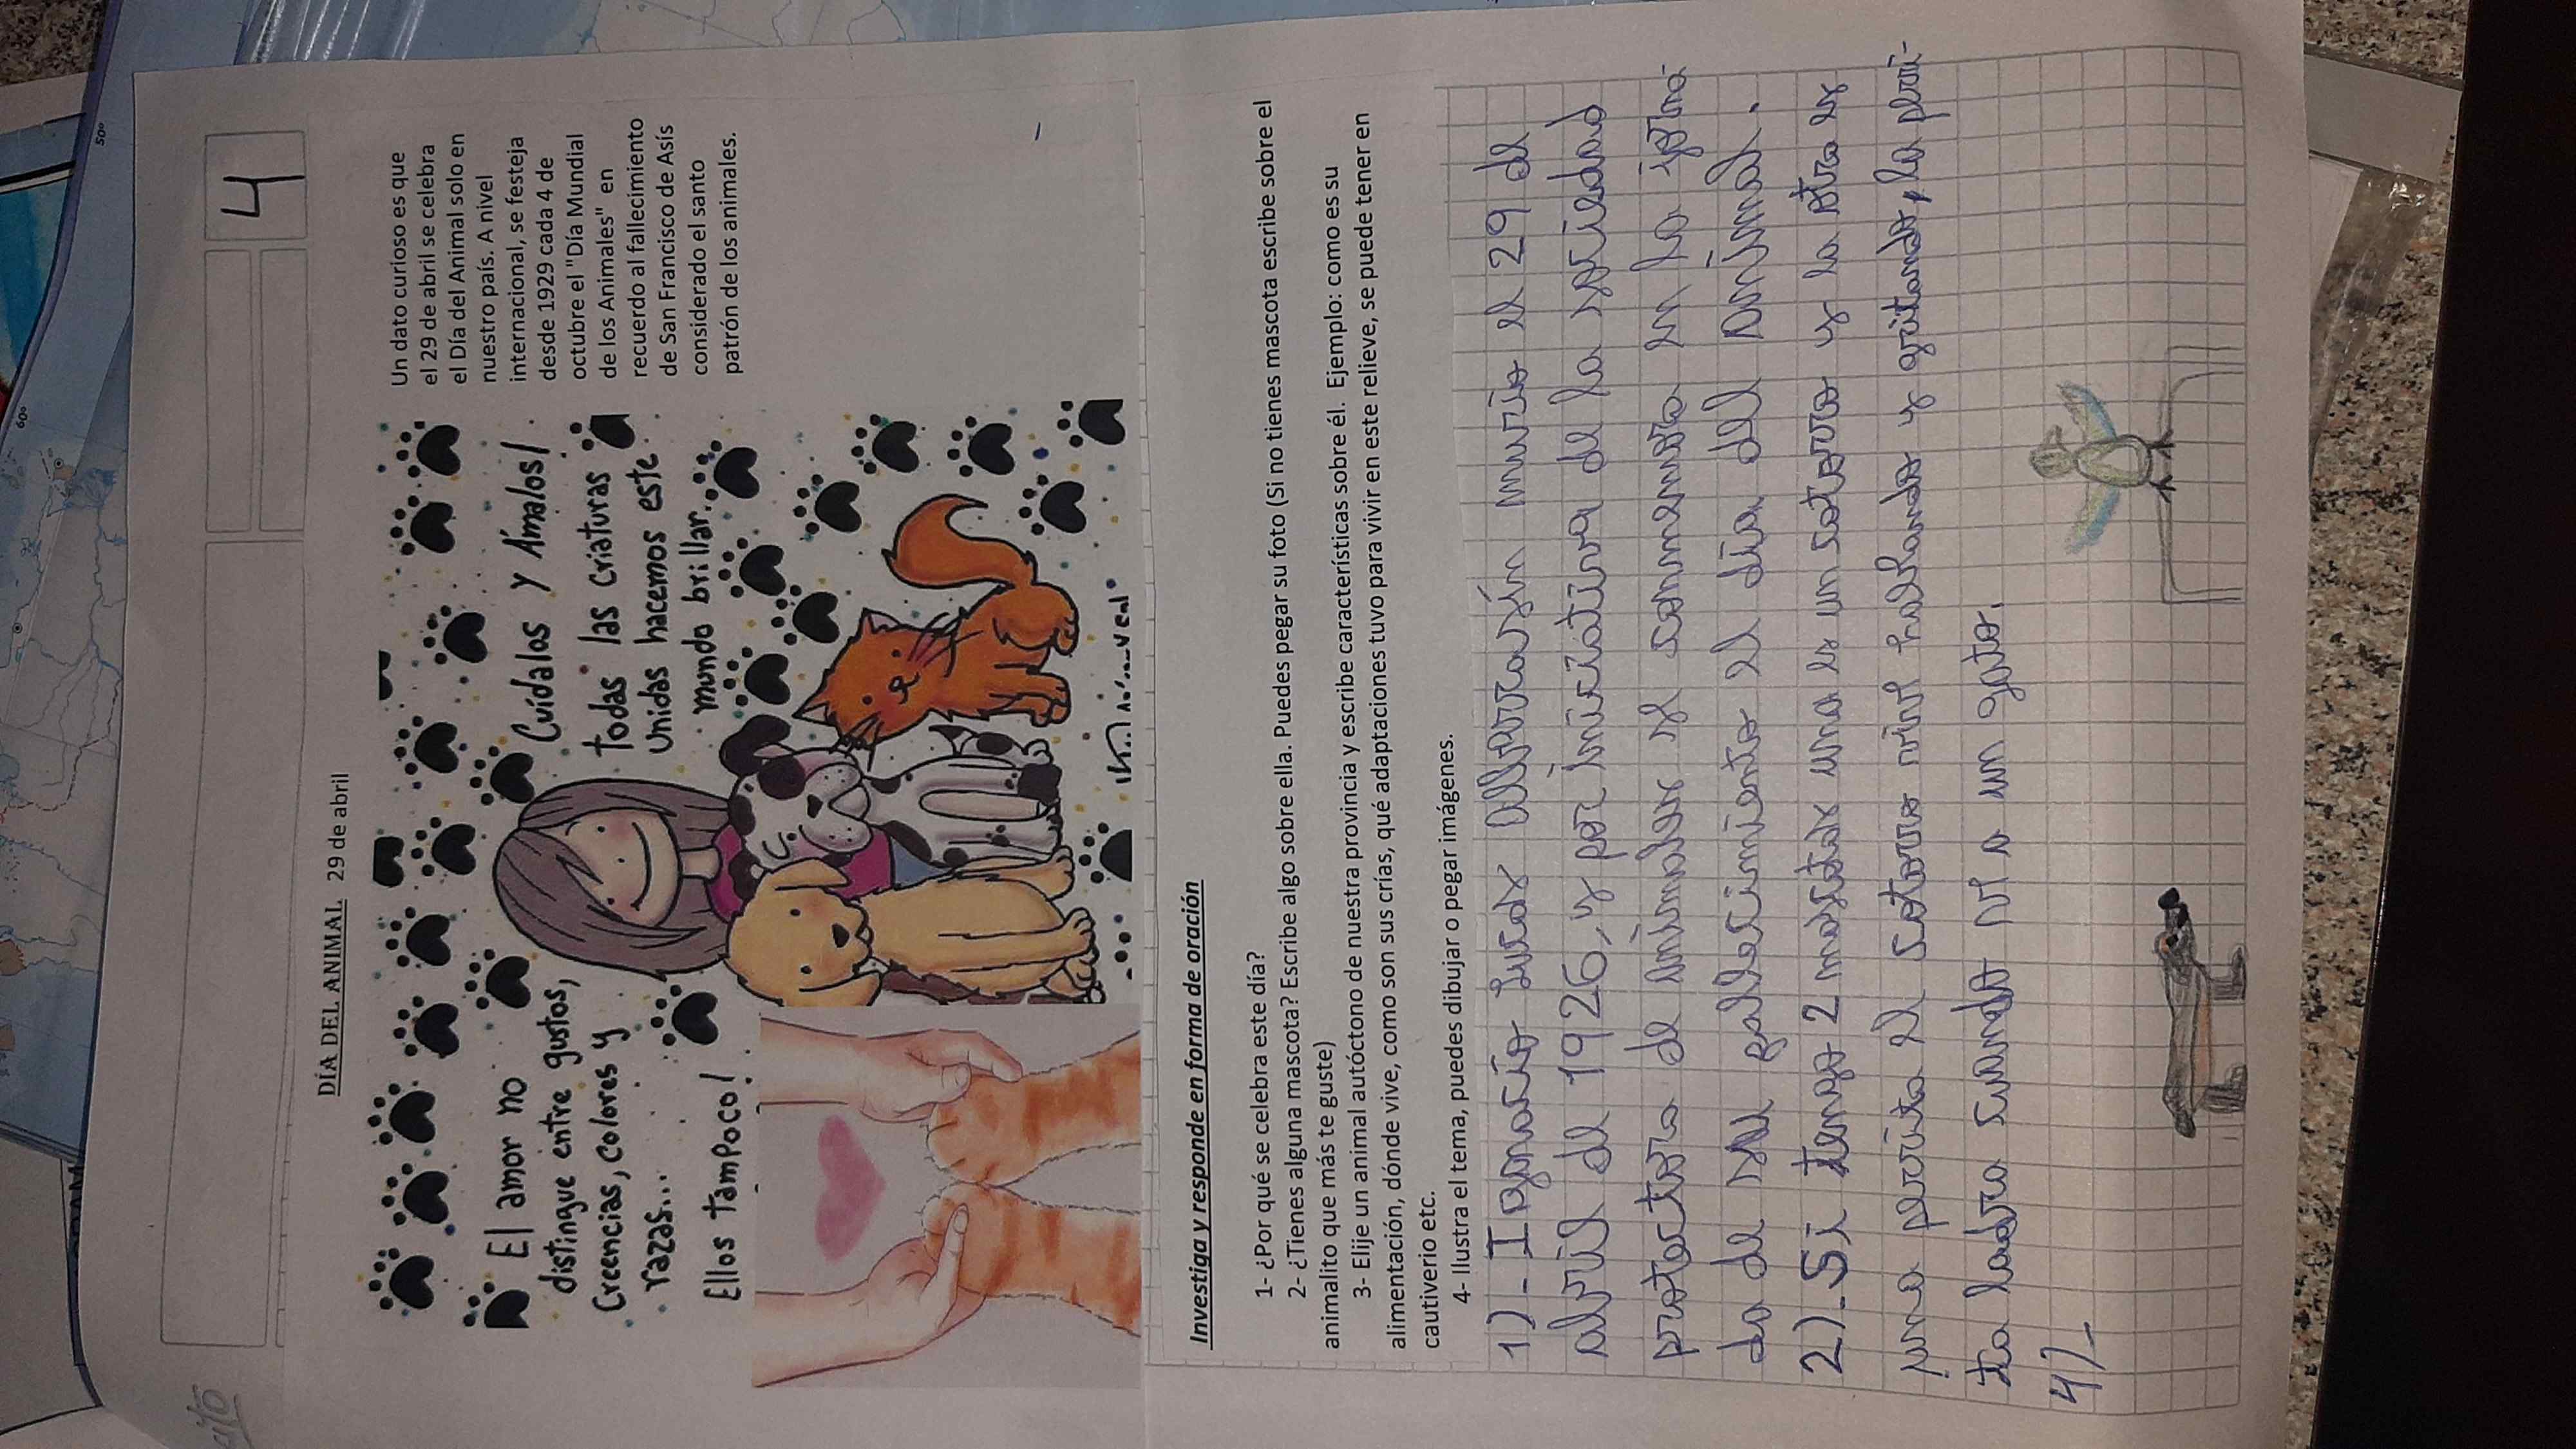 4
DÍA DEL ANIMAL 29 de abril
El amor no
distingue entre gustos,
Creencias, colores y
razas...
Ellos tampoco!
Cuídalos y Ámalos!
Todas las criaturas
unidas hacemos este
mundo brillar.
Un dato curioso es que
el 29 de abril se celebra
el Día del Animal solo en
nuestro país. A nivel
internacional, se festeja
desde 1929 cada 4 de
octubre el "Día Mundial
de los Animales" en
recuerdo al fallecimiento
de San Francisco de Asís
considerado el santo
patrón de los animales.
Investiga y responde en forma de oración
1- ¿Por qué se celebra este día?
2- ¿Tienes alguna mascota? Escribe algo sobre ella. Puedes pegar su foto (Si no tienes mascota escribe sobre el
animalito que más te guste)
3- Elije un animal autóctono de nuestra provincia y escribe características sobre él. Ejemplo: como es su
alimentación, dónde vive, como son sus crías, qué adaptaciones tuvo para vivir en este relieve, se puede tener en
cautiverio etc.
4- Ilustra el tema, puedes dibujar o pegar imágenes.
1)-Ignacio Lucas Albarrasín murio el 29 de
abril de 1926, y por iniciativa de la sociedad
protectora de animales se conmemora en la
da de su fallecimiento el día del Animal.
2)-Si tengo 2 mascotas una es un cotorro y la otra es
una perrita el cotorro vive hablando y gritando, la perri-
ta ladra cuando ve a un gato.
4)-
60°
50°